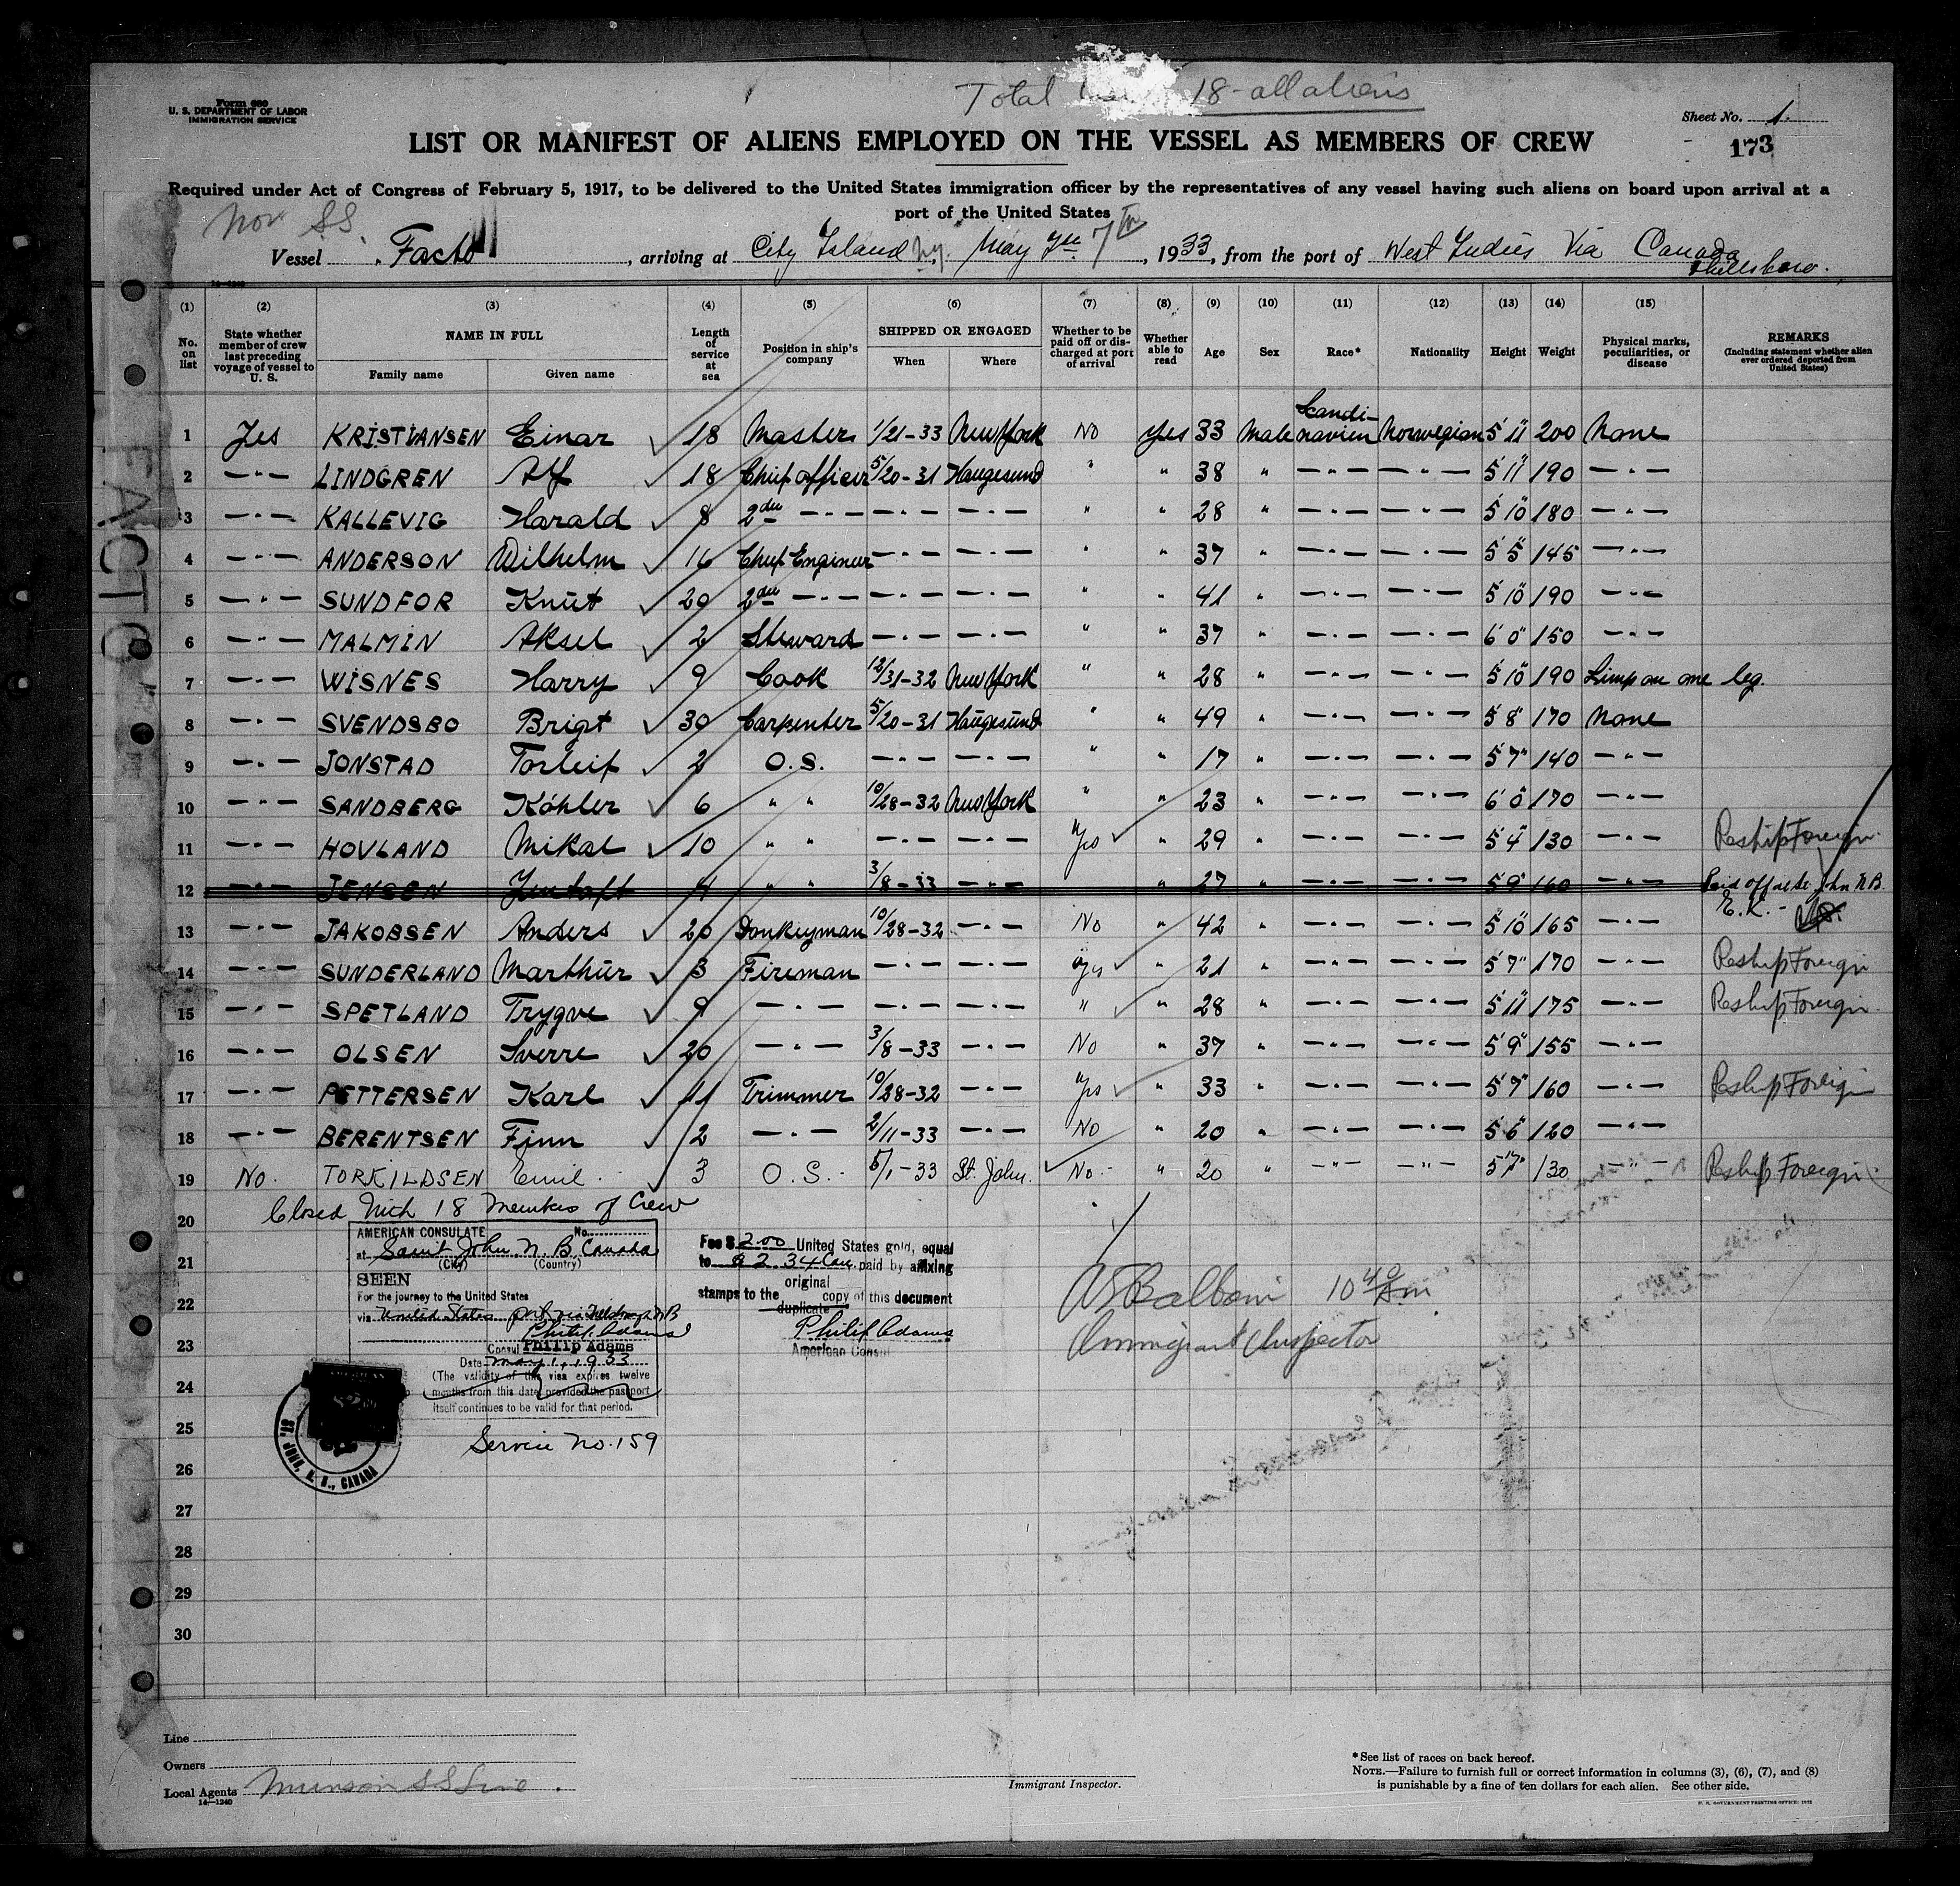 Total 18 - all aliens
Form 680
U. S. DEPARTMENT OF LABOR
IMMIGRATION SERVICE
Sheet No. 1.
173
LIST OR MANIFEST OF ALIENS EMPLOYED ON THE VESSEL AS MEMBERS OF CREW
Required under Act of Congress of February 5, 1917, to be delivered to the United States immigration officer by the representatives of any vessel having such aliens on board upon arrival at a
port of the United States
Nor SS.
Vessel Facto, arriving at City Island N.Y. May 7th 7th, 1933, from the port of West Indies Via Canada
Hillsboro.
(1) (2) (3) (4) (5) (6) (7) (8) (9) (10) (11) (12) (13) (14) (15)
No. on list State whether member of crew last preceding voyage of vessel to U. S. NAME IN FULL Family name Given name Length of service at sea Position in ship's company SHIPPED OR ENGAGED When Where Whether to be paid off or discharged at port of arrival Whether able to read Age Sex Race* Nationality Height Weight Physical marks, peculiarities, or disease REMARKS (Including statement whether alien ever ordered deported from United States)
1 Yes KRISTIANSEN Einar ✓ 18 Master 1/21-33 New York No Yes 33 Male Scandinavien Norwegian 5 11" 200 None
2 —"— LINDGREN Alf ✓ 18 Chief officer 5/20-31 Haugesund " " 38 " —"— —"— 5 11" 190 —"—
3 —"— KALLEVIG Harald ✓ 8 2de —"— —"— —"— " " 28 " —"— —"— 5 10" 180 —"—
4 —"— ANDERSON Wilhelm ✓ 16 Chief Engineer —"— —"— " " 37 " —"— —"— 5 5" 145 —"—
5 —"— SUNDFOR Knut ✓ 20 2de —"— —"— —"— " " 41 " —"— —"— 5 10" 190 —"—
6 —"— MALMIN Aksel ✓ 2 Steward —"— —"— " " 37 " —"— —"— 6 0" 150 —"—
7 —"— WISNES Harry ✓ 9 Cook 12/31-32 New York " " 28 " —"— —"— 5 10" 190 Limp on one leg.
8 —"— SVENDSBO Brigt ✓ 30 Carpenter 5/20-31 Haugesund " " 49 " —"— —"— 5 8" 170 None
9 —"— JONSTAD Torleif ✓ 2 O.S. —"— —"— " " 17 " —"— —"— 5 7" 140 —"—
10 —"— SANDBERG Köhler ✓ 6 " " 10/28-32 New York " " 23 " —"— —"— 6 0" 170 —"—
11 —"— HOVLAND Mikal ✓ 10 " " —"— —"— Yes ✓ " 29 " —"— —"— 5 4" 130 —"— Reship Foreign
12 —"— JENSEN 4 " " 3/8-33 —"— " 27 " —"— —"— 5 9" 160 —"— Paid off at St. John N.B.
E.K.-
13 —"— JAKOBSEN Anders ✓ 20 Donkeyman 10/28-32 —"— No " 42 " —"— —"— 5 10" 165 —"—
14 —"— SUNDERLAND Marthur ✓ 3 Fireman —"— —"— Yes ✓ " 21 " —"— —"— 5 7" 170 —"— Reship Foreign
15 —"— SPETLAND Trygve ✓ 9 —"— —"— —"— " ✓ " 28 " —"— —"— 5 11" 175 —"— Reship Foreign
16 —"— OLSEN Sverre ✓ 20 —"— 3/8-33 —"— No " 37 " —"— —"— 5 9" 155 —"—
17 —"— PETTERSEN Karl ✓ 11 Trimmer 10/28-32 —"— Yes ✓ " 33 " —"— —"— 5 7" 160 —"— Reship Foreign
18 —"— BERENTSEN Finn ✓ 2 —"— 2/11-33 —"— No " 20 " —"— —"— 5 6" 120 —"—
19 No. TORKILDSEN Emil ✓ 3 O.S. 5/1-33 St. John. ✓ No.- " 20 " —"— —"— 5 7" 130 —"— Reship Foreign
20 Closed With 18 Members of Crew
21
22
23
24
25
26
27
28
29
30
AMERICAN CONSULATE No.
at Saint John N. B. Canada
(City) (Country)
SEEN
For the journey to the United States
via United States port via Hillsboro N B
Philip Adams
Consul Philip Adams
Date May 1, 1933
(The validity of this visa expires twelve
months from this date provided the passport
itself continues to be valid for that period.
Service No. 159
ST. JOHN, N. B., CANADA
Fee $ 2.00 United States gold, equal
to $ 2.34 Can. paid by affixing
original
stamps to the duplicate copy of this document
Philip Adams
American Consul
10 40 Am
Immigrant Inspector
FACTO
Line
Owners
Local Agents Munson SS Line.
14—1240
Immigrant Inspector.
*See list of races on back hereof.
NOTE.—Failure to furnish full or correct information in columns (3), (6), (7), and (8)
is punishable by a fine of ten dollars for each alien. See other side.
U. S. GOVERNMENT PRINTING OFFICE: 1932